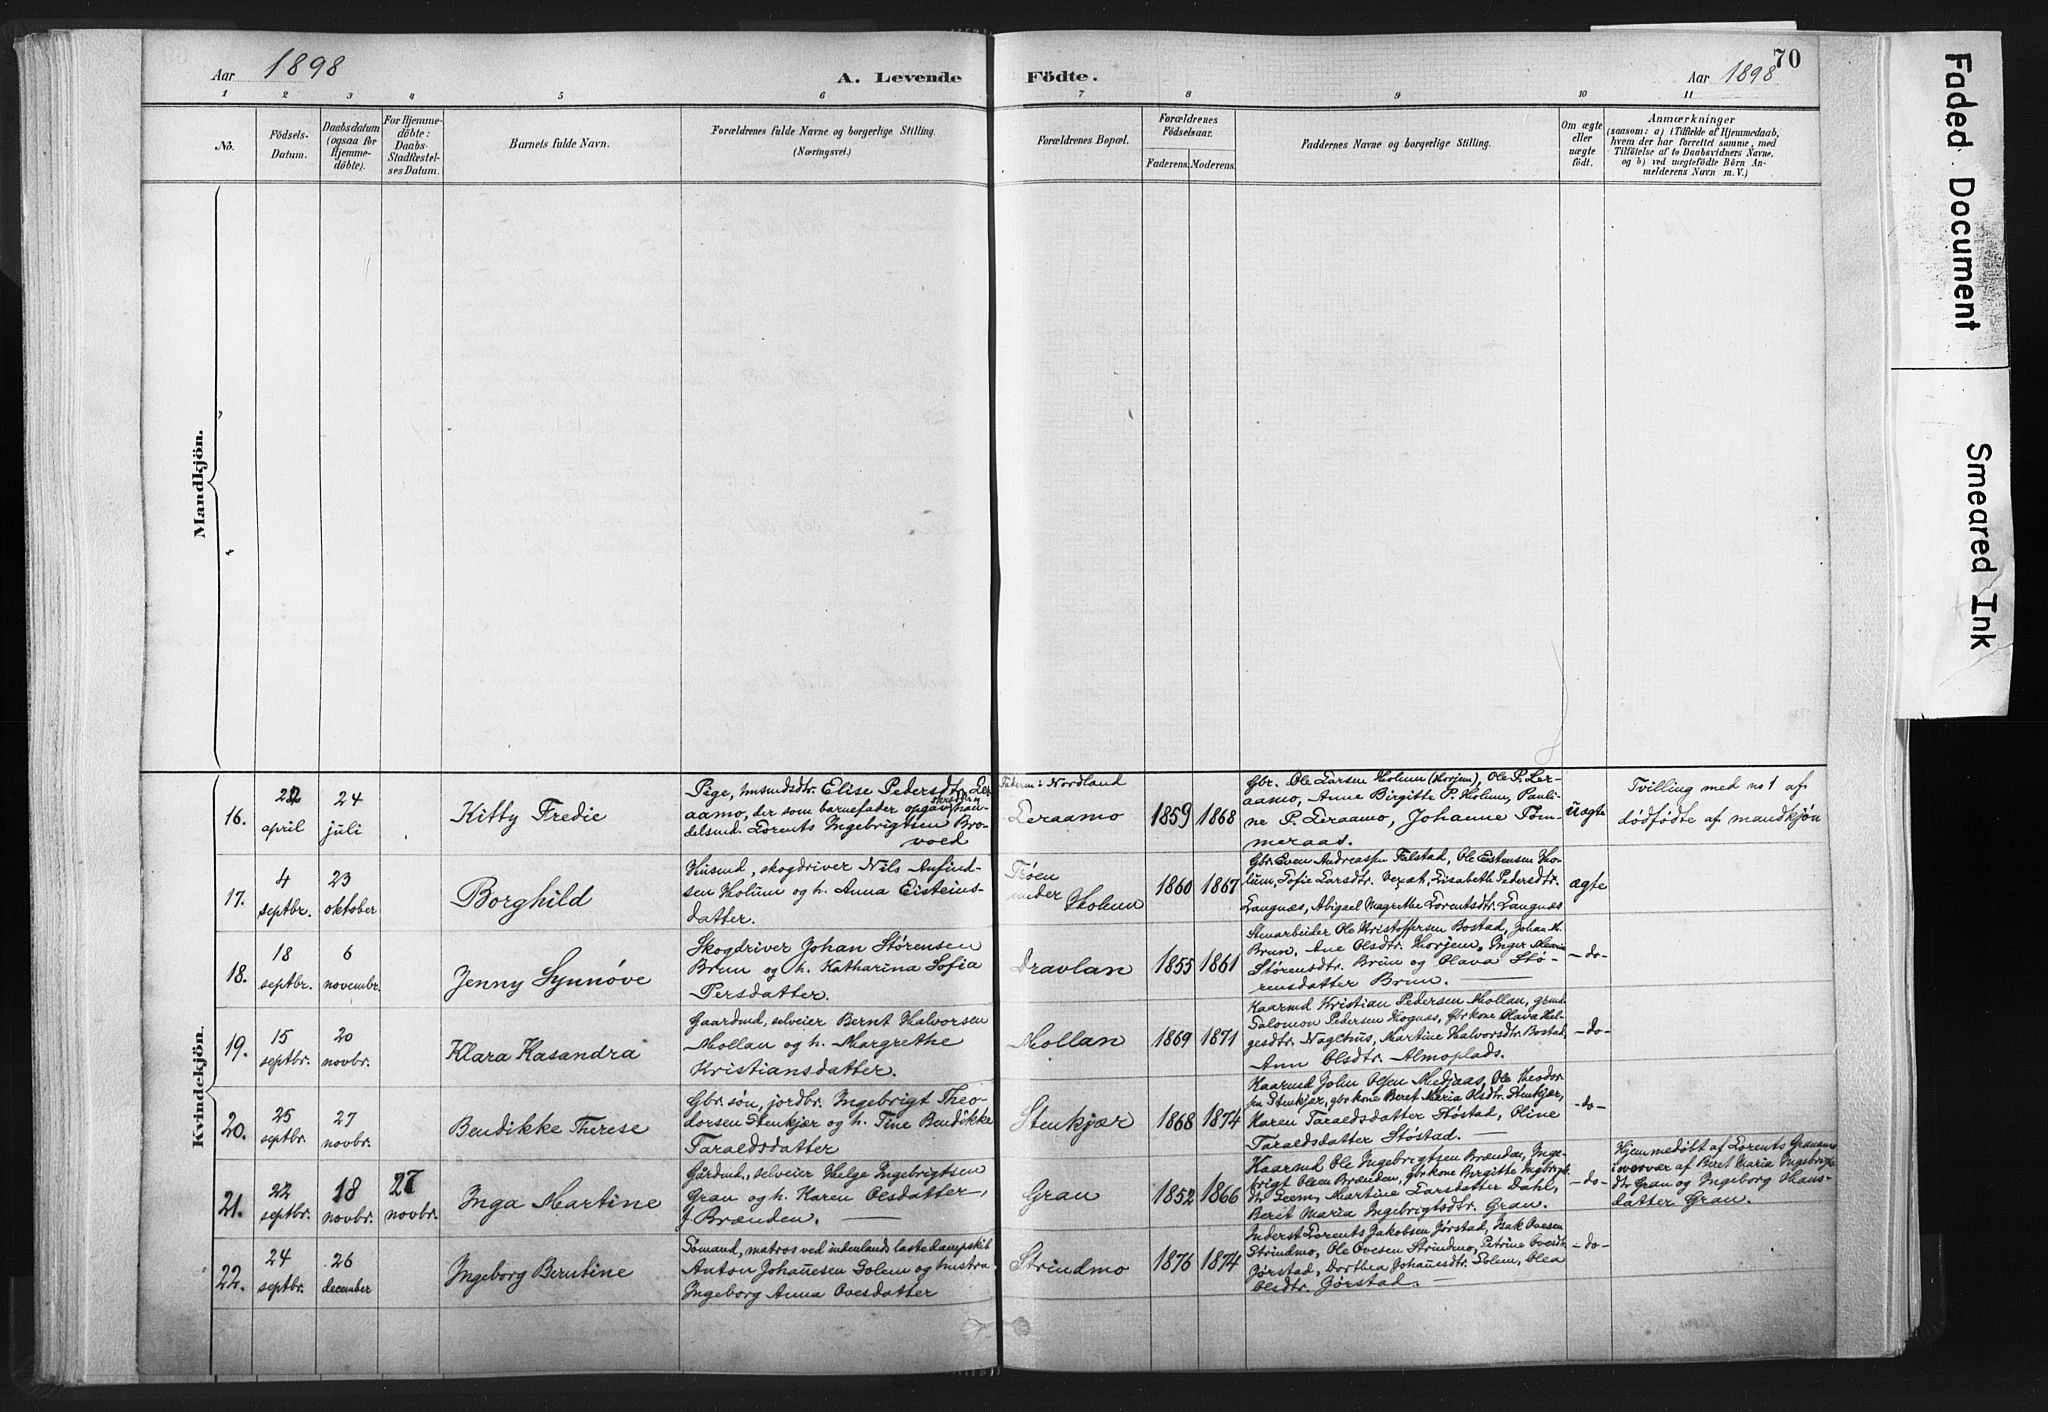 Aar 1898
A. Levende
Födte.
70
Aar 1898
1 2 3 4 5 6 7 8 9 10 11
No.
Födsels-
Datum.
Daabsdatum
(ogsaa for
Hjemme-
døbte).
For Hjemme-
döbte:
Daabs-
Stadfæstel-
ses Datum.
Barnets fulde Navn.
Forældrenes fulde Navne og borgerlige Stilling.
(Næringsvei.)
Forældrenes Bopæl.
Forældrenes
Födselsaar.
Faderens. Moderens.
Faddernes Navne og borgerlige Stilling.
Om ægte
eller
uægte
födt.
Anmærkninger
(saasom: a) i Tilfælde af Hjemmedaab,
hvem der har forrettet samme, med
Tilföielse af to Daabsvidners Navne.
og b) ved uægtefödte Börn An-
melderens Navn m. V.)
Mandkjön.
Kvindekjön.
16.
22
april
24
juli
Kitty Fredie
Pige, husmdsdtr. Elise Pedersdtr. Ler-
aamo, der som barnefader opgav han-
delsmd. Lorents Ingebrigtsen Bro-
vold
Faderen i Nordland
Leraamo
1859
1868
Gbr. Ole Larsen Holum (Horjem), Ole P. Ler-
aamo, Anne Birgitte P. Holum, Pauli-
ne P. Leraamo, Johanne Töm-
meraas.
uægte
Tvilling med no 1 af
dödfödte af mandkjön
17.
4
septbr.
23
oktober
Borghild
Husmd, skogdriver Nils Anfind-
sen Holum og h. Anna Eisteins-
datter.
Trøen
under Holum
1860
1867
Gbr. Even Andreassen Falstad, Ole Eistensen Ho-
lum, Sofie Larsdtr. Veræt, Lisabeth Pedersdtr.
Langnæs, Abigael Magrethe Lorentsdtr. Langnæs
ægte
18.
18
septbr.
6
novembr.
Jenny Synnöve
Skogdriver Johan Størensen
Brun og h. Katharina Sofia
Persdatter.
Dravlan
1855
1861
Stenarbeider Ole Kristoffersen Bostad, Johan M.
Brun, Ane Olsdtr. Horjem, Inger Maria
Størensdtr. Brun og Olava Stø-
rensdatter Brun.
- do -
19.
15
septbr.
20
novbr.
Klara Kasandra
Gaardmd, selveier Bernt Halvorsen
Mollan og h. Margrethe
Kristiansdatter.
Mollan
1869
1871
Kaarmd Kristian Pedersen Mollan, grmd.
Salomon Pedersen Hognæs, Gbrkone Olava Hel-
gesdtr. Nagehus, Martine Halvorsdtr. Bostad,
Ann Olsdtr. Almoplads.
- do -
20.
25
septbr.
27
novbr.
Bendikke Therese
Gbr. søn, jordbr. Ingebrigt Theo-
dorsen Stenkjær og h. Tine Bendikke
Taraldsdatter
Stenkjær
1868
1874
Kaarmd John Olsen Medjaas, Ole Theodor-
sen Stenkjær, gbrkone Beret Maria Olsdtr. Stenkjær,
Karen Taraldsdatter Støstad, Oline
Taraldsdatter Støstad.
- do -
21.
22
septbr.
18
novbr.
27
novbr.
Inga Martine
Gårdmd., selveier Helge Ingebrigtsen
Gran og h. Karen Olsdatter,
f. Brænden.
Gran
1852
1866
Kaarmd Ole Ingebrigtsen Brænden, Inge-
brigt Olsen Brænden, gbrkone Birgitte Ingebrigts-
dtr Leem, Martine Larsdatter Dahl,
Beret Maria Ingebrigtsdtr. Gran.
- do -
Hjemmedøbt af Lorents Granamo
i nærvær af Beret Maria Ingebrigts-
dtr Gran og Ingeborg Hans-
datter Gran.
22.
24
septbr.
26
december
Ingeborg Berntine
Sømand, matros ved indenlands lastedampskib
Anton Johansen Solem og hustru
Ingeborg Anna Ovesdatter
Strindmo
1876
1874
Inderst Lorents Jakobsen Jørstad, Isak Ovesen
Strindmo, Ole Ovesen Strindmo, Petrine Ovesdtr.
Gjørstad, Dorthea Johansdtr. Solem, Olea
Olsdtr. Gjørstad.
- do -
Faded Document
Smeared Ink